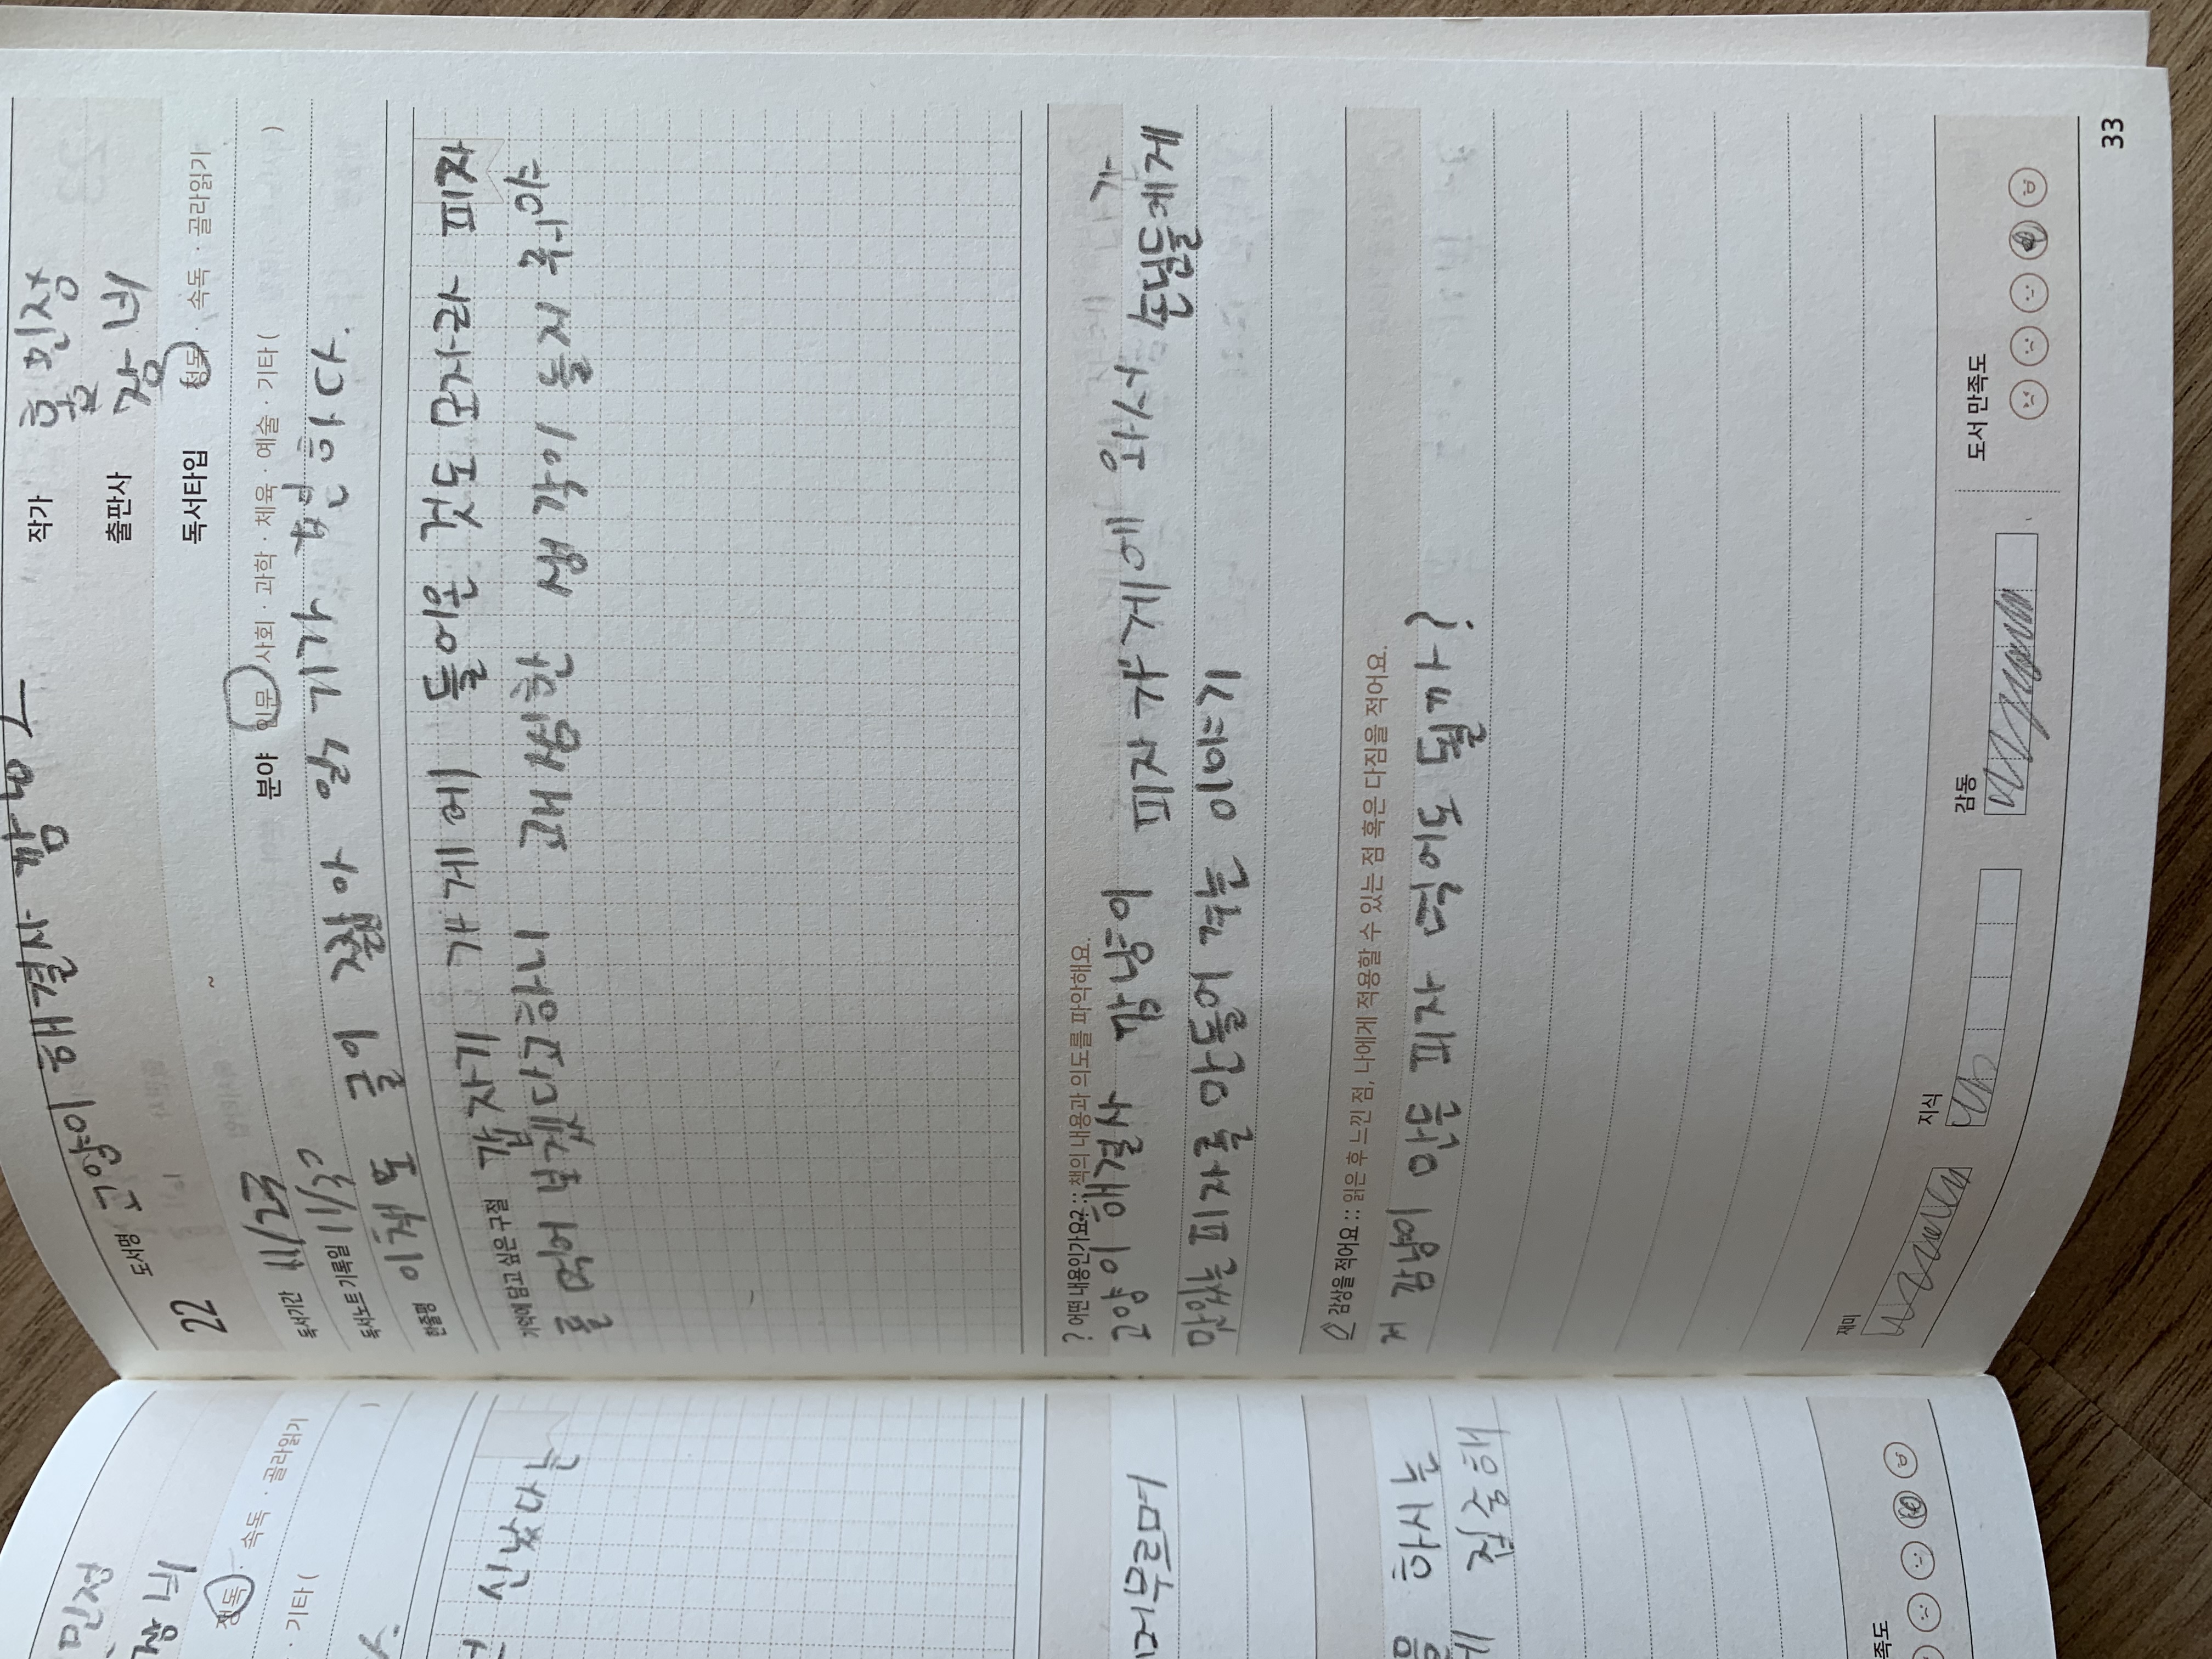 민정
창비
정독 · 속독 · 골라읽기
· 기타 (
)
신났다는
부르며
하시는
집중해
족도
22
도서명 고양이 해결사 깜냥 2
작가 홍민정
출판사 창비
독서타입 정독 · 속독 · 골라읽기
~
독서기간 11/23
분야 인문 사회 · 과학 · 체육 · 예술 · 기타 ( )
독서노트 기록일 11/30
한줄평 이책도 글이 짧아 읽기가 편하다.
기억에 담고 싶은 구절 갑자기 가게에 들어온 것도 모자라 피자
를 먹어 보겠다고하니 괘씸한 생각이 들지 뭐야
? 어떤 내용인가요? :: 책의 내용과 의도를 파악해요.
고양이 해결사 깜냥이 피자가게에 와서 손님들에게
맛있는 피자를 만들어 주는 이야기
감상을 적어요 :: 읽은 후 느낀 점, 나에게 적용할 수 있는 점 혹은 다짐을 적어요.
저 깜냥이 만든 피자 먹어도 될까?
재미
지식
감동
도서 만족도
33